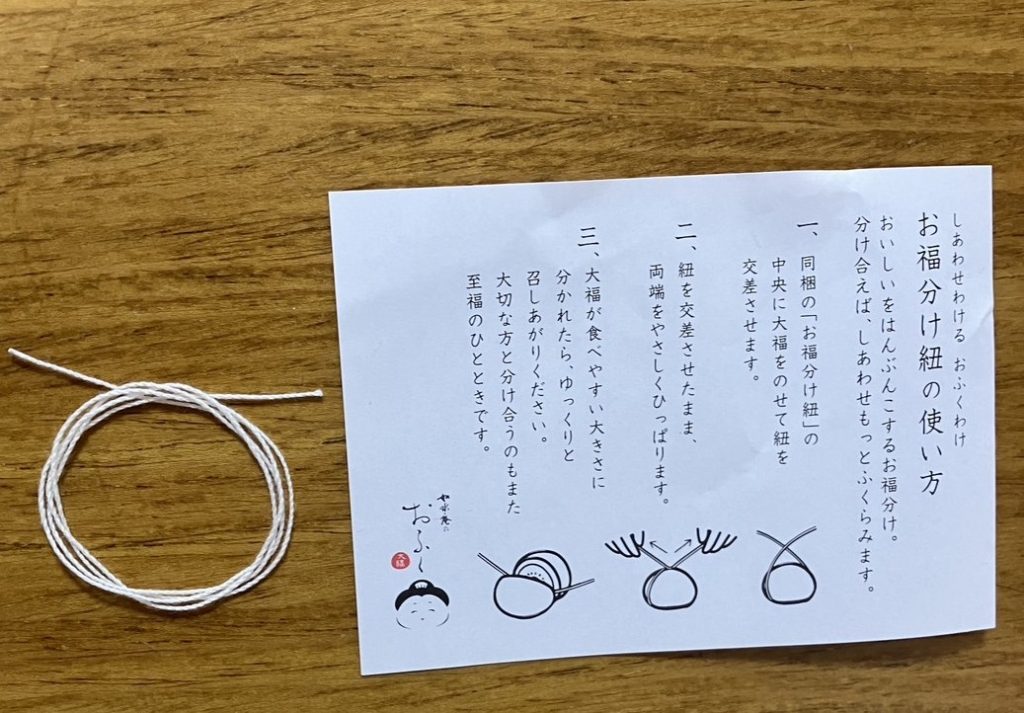 しあわせわける おふくわけ
お福分け紐の使い方
おいしいをはんぶんこするお福分け。
分け合えば、しあわせもっとふくらみます。
一、同梱の「お福分け紐」の
中央に大福をのせて紐を
交差させます。
二、紐を交差させたまま、
両端をやさしくひっぱります。
三、大福が食べやすい大きさに
分かれたら、ゆっくりと
召しあがりください。
大切な方と分け合うのもまた
至福のひとときです。
おふく
大福